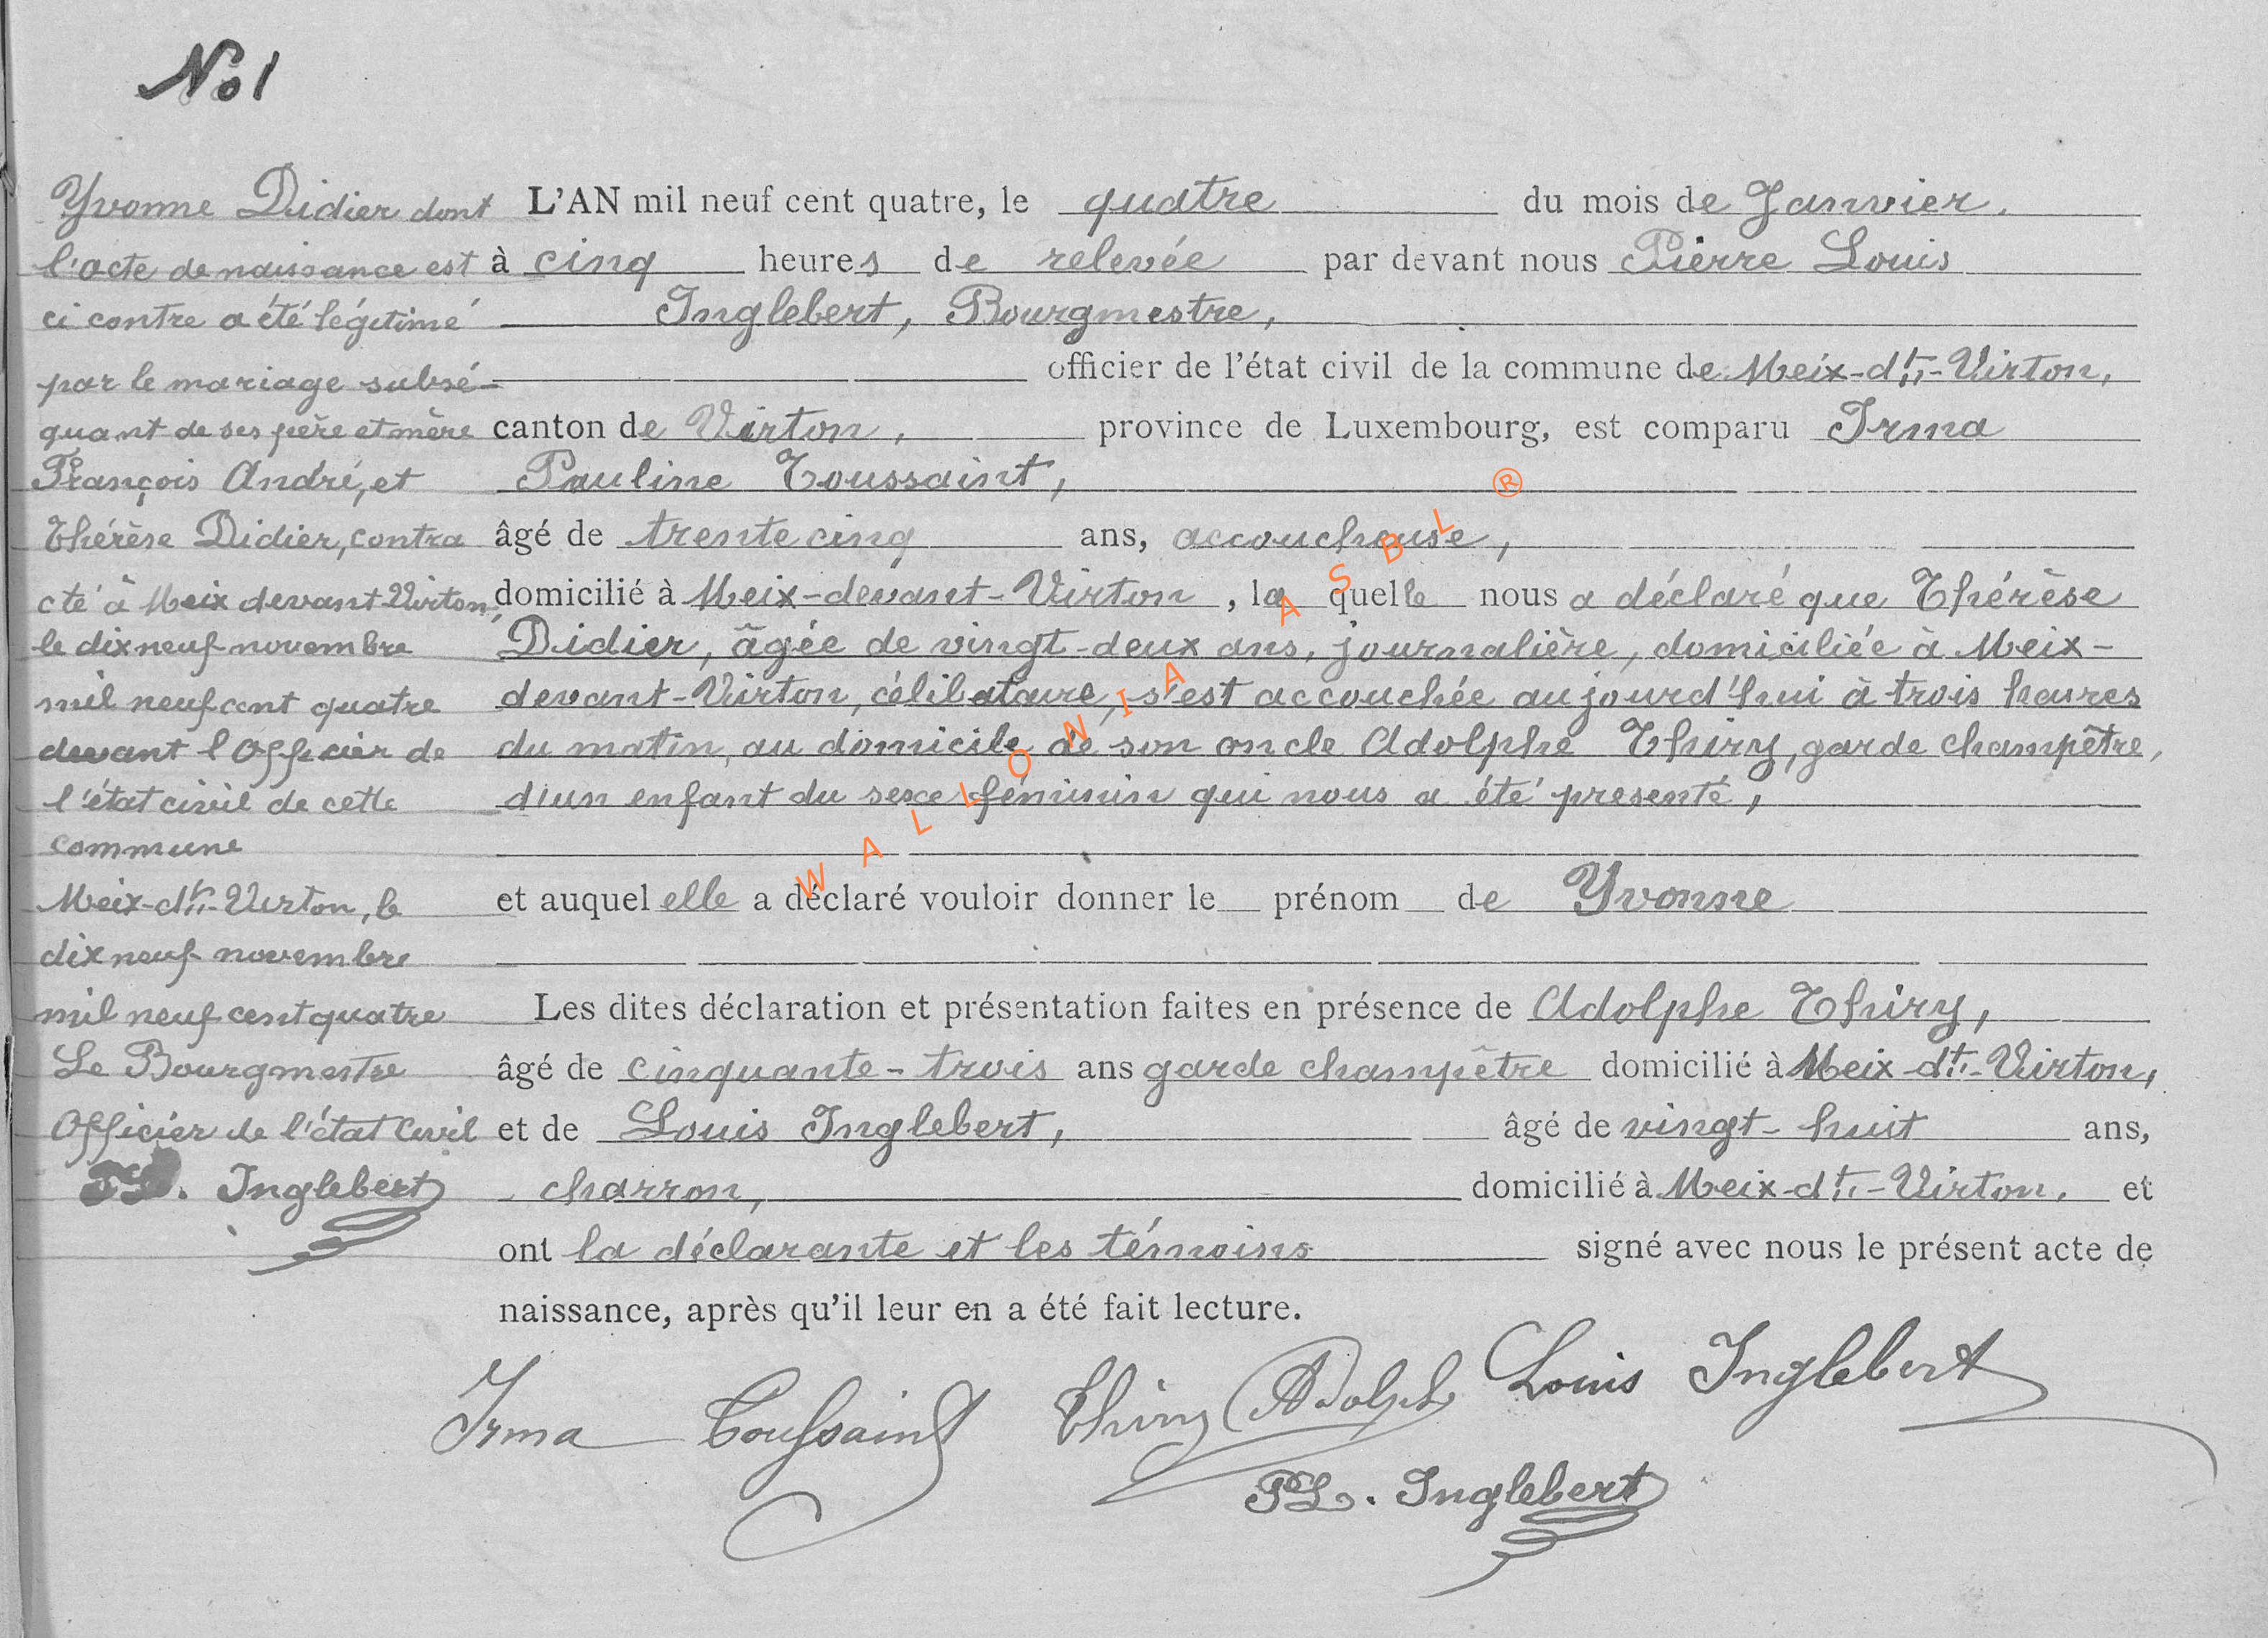 No 1
Yvonne Didier dont
l'acte de naissance est
ci contre a été légitimé
par le mariage subsé-
quant de ses père et mère
François André, et
Thérèse Didier, contra
cté à Meix devant Virton,
le dix neuf novembre
mil neuf cent quatre
devant l'Officier de
l'état civil de cette
commune
Meix-dt-Virton, le
dix neuf novembre
mil neuf cent quatre
Le Bourgmestre
Officier de l'état Civil
PL. Inglebert
L'AN mil neuf cent quatre, le quatre du mois de Janvier,
à cinq heures de relevée par devant nous Pierre Louis
Inglebert, Bourgmestre,
officier de l'état civil de la commune de Meix-dt-Virton,
canton de Virton, province de Luxembourg, est comparu Irma
Pauline Toussaint,
âgé de trente cinq ans, accoucheuse,
domicilié à Meix-devant-Virton, la quelle nous a déclaré que Thérèse
Didier, âgée de vingt-deux ans, journalière, domiciliée à Meix-
devant-Virton, célibataire, s'est accouchée aujourd'hui à trois heures
du matin, au domicile de son oncle Adolphe Thiry, garde champêtre,
d'un enfant du sexe féminin qui nous a été présenté,
et auquel elle a déclaré vouloir donner le prénom de Yvonne
Les dites déclaration et présentation faites en présence de Adolphe Thiry,
âgé de cinquante-trois ans garde champêtre domicilié à Meix-dt-Virton,
et de Louis Inglebert, âgé de vingt-huit ans,
charron, domicilié à Meix-dt-Virton, et
ont la déclarante et les témoins signé avec nous le présent acte de
naissance, après qu'il leur en a été fait lecture.
Irma Toussaint Thiry Adolphe Louis Inglebert
PL. Inglebert
WALLONIA ASBL ®